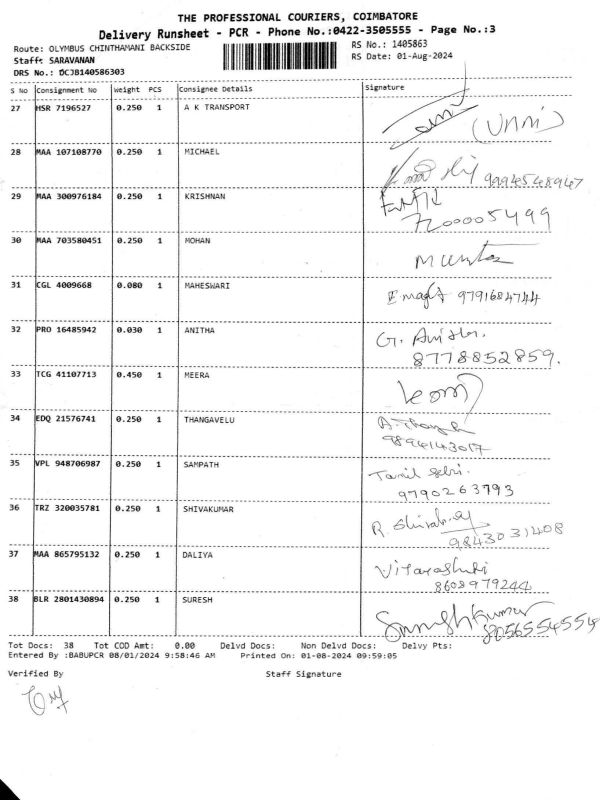 THE PROFESSIONAL COURIERS, COIMBATORE
Delivery Runsheet - PCR - Phone No.:0422-3505555 - Page No.:3
Route: OLYMBUS CHINTHAMANI BACKSIDE RS No.: 1405863
Staff: SARAVANAN RS Date: 01-Aug-2024
DRS No.: DCJB140586303
S No Consignment No Weight PCS Consignee Details Signature
27 HSR 7196527 0.250 1 A K TRANSPORT (Unni)
28 MAA 107108770 0.250 1 MICHAEL
9994548947
29 MAA 300976184 0.250 1 KRISHNAN
7200005499
30 MAA 703580451 0.250 1 MOHAN
31 CGL 4009668 0.080 1 MAHESWARI
9791684744
32 PRO 16485942 0.030 1 ANITHA G. Anitha.
8778852859.
33 TCG 41107713 0.450 1 MEERA
34 EDQ 21576741 0.250 1 THANGAVELU
9894143017
35 VPL 948706987 0.250 1 SAMPATH Tamil Selvi.
9790263793
36 TRZ 320035781 0.250 1 SHIVAKUMAR
9843031408
37 MAA 865795132 0.250 1 DALIYA
8608979244
38 BLR 2801430894 0.250 1 SURESH Sureshkumar
8056554554
Tot Docs: 38 Tot COD Amt: 0.00 Delvd Docs: Non Delvd Docs: Delvy Pts:
Entered By :BABUPCR 08/01/2024 9:58:46 AM Printed On: 01-08-2024 09:59:05
Verified By Staff Signature